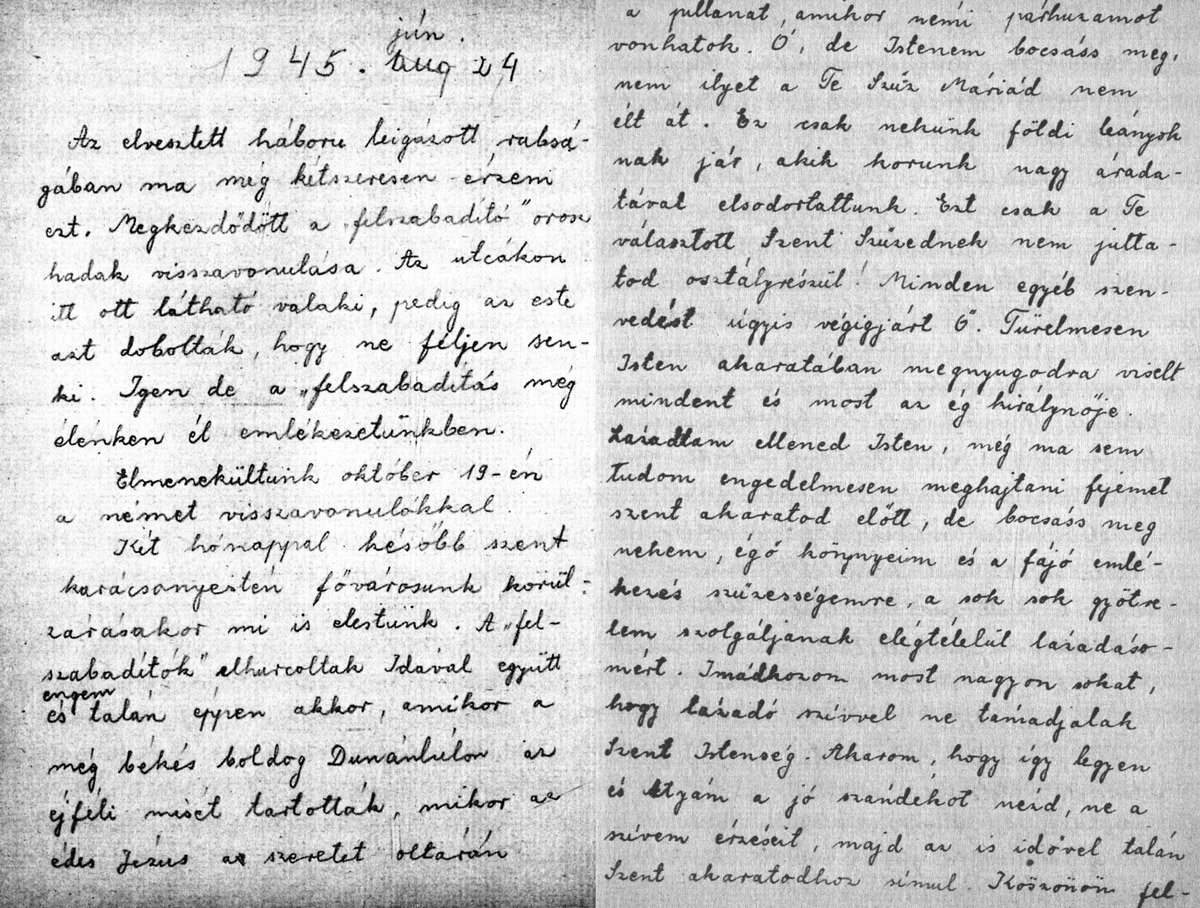 jún.
1945. Aug 24
Az elvesztett háboru leigázott rabsá-
gában ma még kétszeresen érzem
ezt. Megkezdődött a „felszabadító" orosz
hadak visszavonulása. Az utcákon
itt ott látható valaki, pedig az este
azt dobolták, hogy ne féljen sen-
ki. Igen de a „felszabadítás még
élénken él emlékezetünkben.
Elmenekültünk október 19-én
a német visszavonulókkal.
Két hónappal később szent
karácsonyestén fővárosunk körül-
zárásakor mi is elestünk. A „fel-
szabadítók" elhurcoltak Idával együtt
engem
és talán éppen akkor, amikor a
még békés boldog Dunántúlon az
éjféli misét tartották, mikor az
édes Jézus a szeretet oltárán
a pillanat, amikor némi párhuzamot
vonhatok. Ó, de Istenem bocsáss meg,
nem ilyet a Te Szűz Máriád nem
élt át. Ez csak nekünk földi leányok
nak jár, akik korunk nagy árada-
tával elsodortattunk. Ezt csak a Te
választott Szent Szűzednek nem jutta-
tod osztályrészül! Minden egyéb szen-
vedést úgyis végigjárt Ő. Türelmesen
Isten akaratában megnyugodva viselt
mindent és most az ég királynője.
Lázadtam ellened Isten, még ma sem
tudom engedelmesen meghajtani fejemet
szent akaratod előtt, de bocsáss meg
nekem, égő könnyeim és a fájó emlé-
kezés szűzességemre, a sok sok gyötre-
lem szolgáljanak elégtételül lázadáso-
mért. Imádkozom most nagyon sokat,
hogy lázadó szívvel ne támadjalak
Szent Istenség. Akarom, hogy így legyen
és Atyám a jó szándékot nézd, ne a
szívem érzéseit, majd az is idővel talán
Szent akaratodhoz símul. Köszönöm fel-